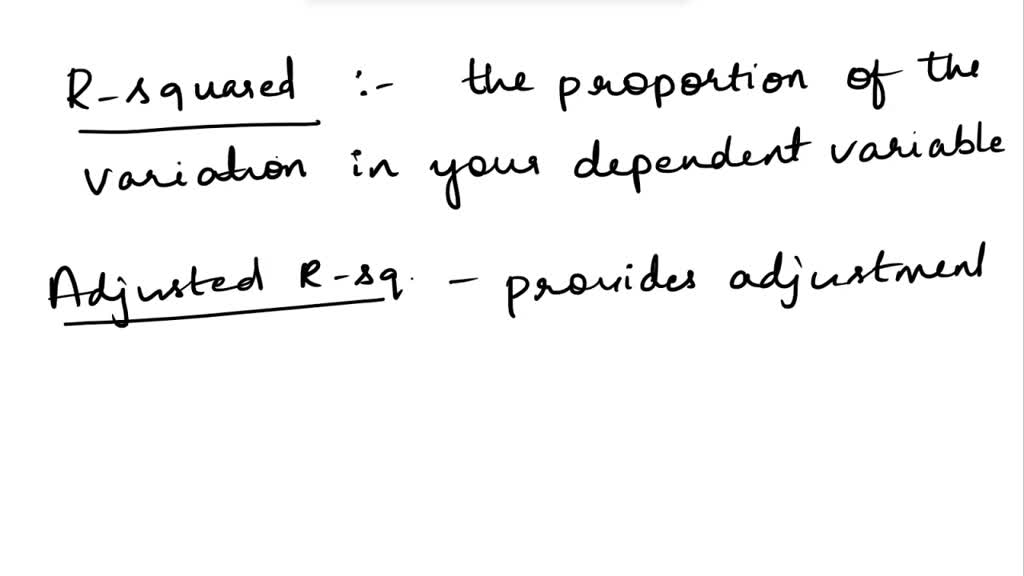 R-squared :- the proportion of the
variation in your dependent variable
Adjusted R-sq. - provides adjustment